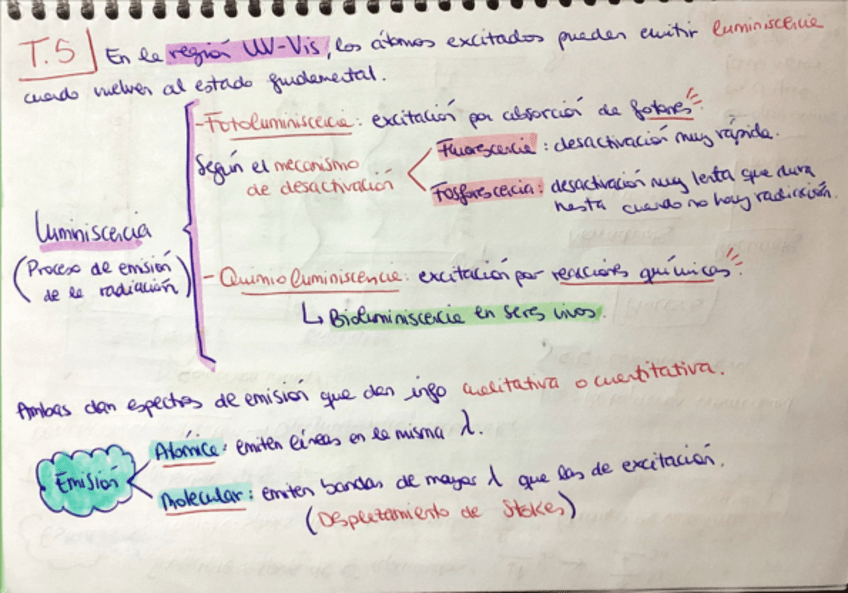 T.5 En la región UV-Vis, los átomos excitados pueden emitir luminiscencia
cuando vuelven al estado fundamental.
- Fotoluminiscencia: excitación por absorción de fotones.
Según el mecanismo
de desactivación
Fluorescencia: desactivación muy rápida.
Fosforescencia: desactivación muy lenta que dura
hasta cuando no hay radiación.
Luminiscencia
(Proceso de emisión
de la radiación)
- Quimioluminiscencia: excitación por reacciones químicas.
↳ Bioluminiscencia en seres vivos.
Ambas dan espectros de emisión que dan info cualitativa o cuantitativa.
Emisión
Atómica: emiten líneas en la misma λ.
Molecular: emiten bandas de mayor λ que las de excitación.
(Desplazamiento de Stokes)